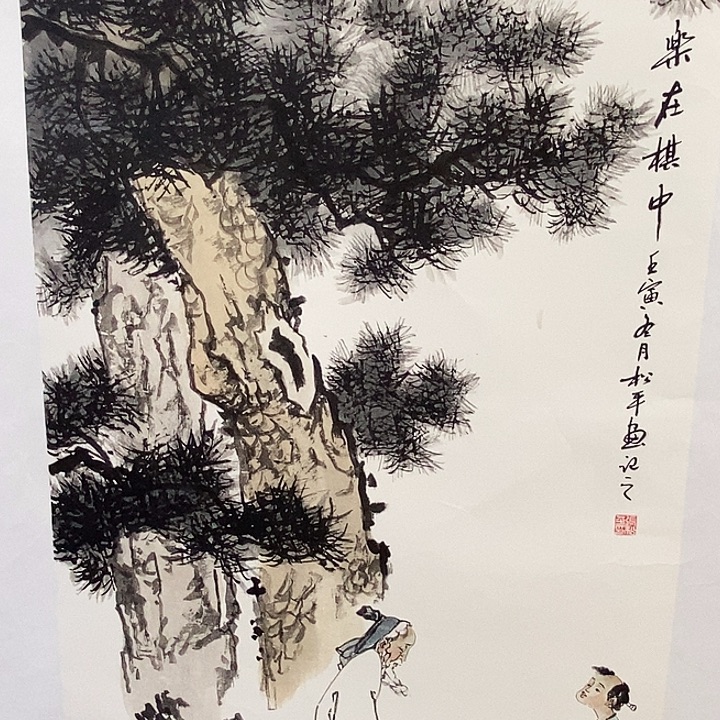 樂在棋中
壬寅冬月松平畫記之